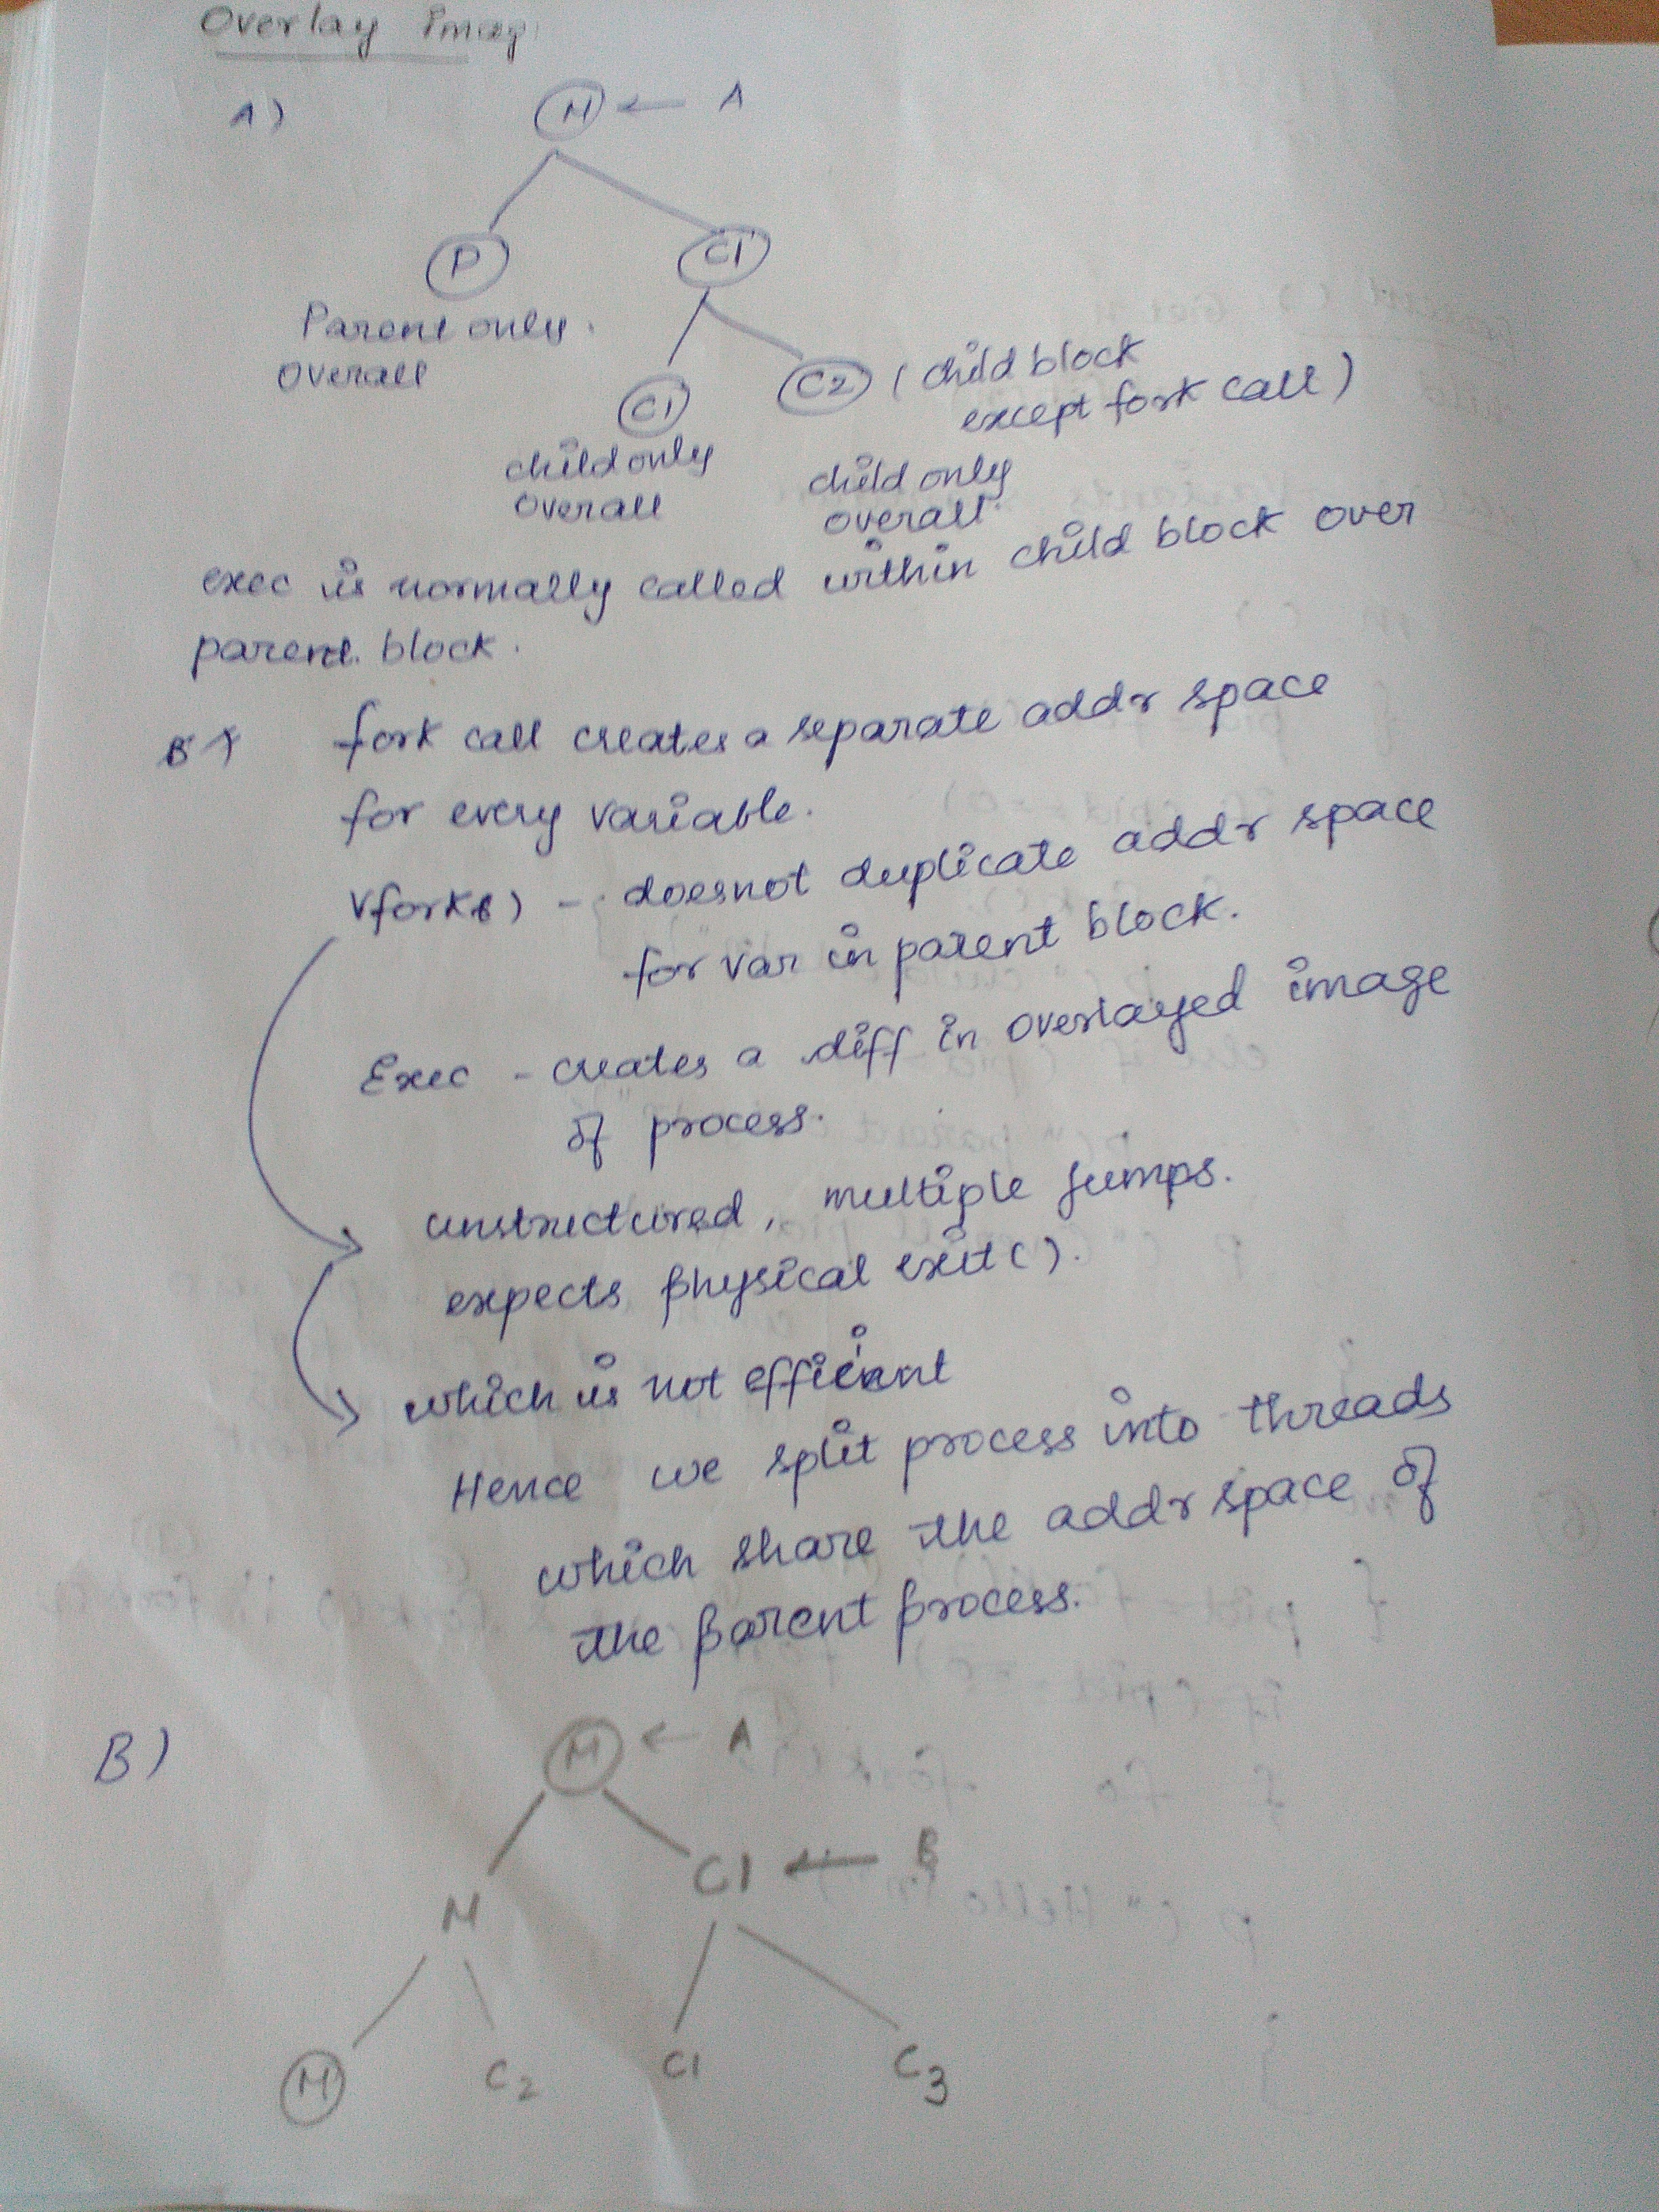 Overlay imag
A)
M ← A
P
C1
Parent only.
overall
C1
C2 (child block
except fork call)
child only
overall
child only
overall.
exec is normally called within child block over
parent block.
fork call creates a separate addr space
for every variable.
Vfork() - doesnot duplicate addr space
for var in parent block.
Exec - creates a diff in overlayed image
of process.
unstructured, multiple jumps.
expects physical exit().
which is not efficient
Hence we split process into threads
which share the addr space of
the parent process.
B)
M ← A
C1 ← B
M
M
C2
C1
C3